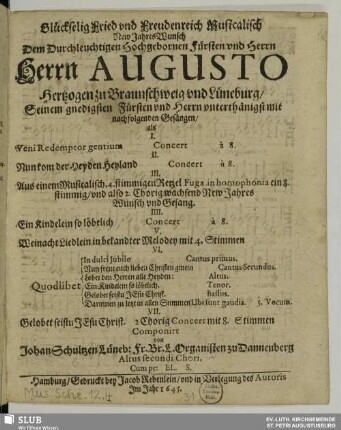 Glückselig Fried vnd Freudenreich Musicalisch
New Jahrs Wunsch
Dem Durchleuchtigen Hochgebornen Fürsten vnd Herrn
Herrn AUGUSTO
Hertzogen zu Braunschweig vnd Lüneburg/
Seinem gnedigsten Fürsten vnd Herrn vnterthänigst mit
nachfolgenden Gesängen/
als
I.
Veni Redemptor gentium Concert à 8.
II.
Nun kom der Heyden Heyland Concert à 8.
III.
Aus einem Musicalisch. 4. stimmigen Retzel Fuga in homophonia ein 8.
stimmig/ vnd also 2. Chorig wachsend New Jahrs
Wunsch vnd Gesang.
IIII.
Ein Kindelein so löbtlich Concert à 8.
V.
Weinacht Liedlein in bekandter Melodey mit 4. Stimmen
VI.
In dulci Jubilo Cantus primus.
Nun frewt euch lieben Christen gmein Cantus Secundus.
Lobet den Herren alle Heyden: Altus.
Quodlibet Ein Kindelein so löbtlich. Tenor.
Gelobet seistu JEsu Christ. Bassus.
Darinnen zu letzt in allen Stimmen 5. Vocum.
VII.
Gelobet seistu JEsu Christ. 2 Chorig Concert mit 8. Stimmen
Componirt
von
Johan Schultzen Lüneb: Fr: Br: L. Organisten zu Dannenberg
Altus secundi Chori.
Cum pr: El. S.
Hamburg/ Gedruckt bey Jacob Rebenlein/ vnd in Verlegung des Autoris
Im Jahr 1645.
Mus. Schü. 12.4
31
SLUB
Wir führen Wissen.
EV.-LUTH. KIRCHGEMEINDE
ST. PETRI AUGUSTUSBURG